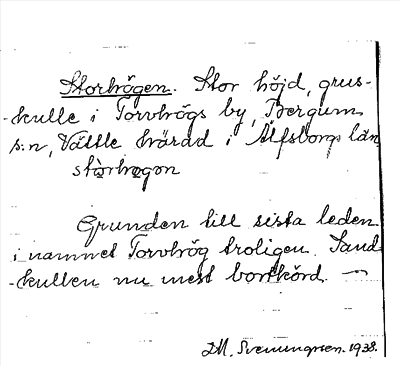 Storhögen. Stor höjd, grus-
-kulle i Torvhögs by, Bergum
s:n, Vättle härad i Älfsborgs län
stòrhøgon
Grunden till sista leden
i namnet Torvhög troligen. Sand-
-kullen nu mest bortkörd.
J.M. Svenungsen. 1938.